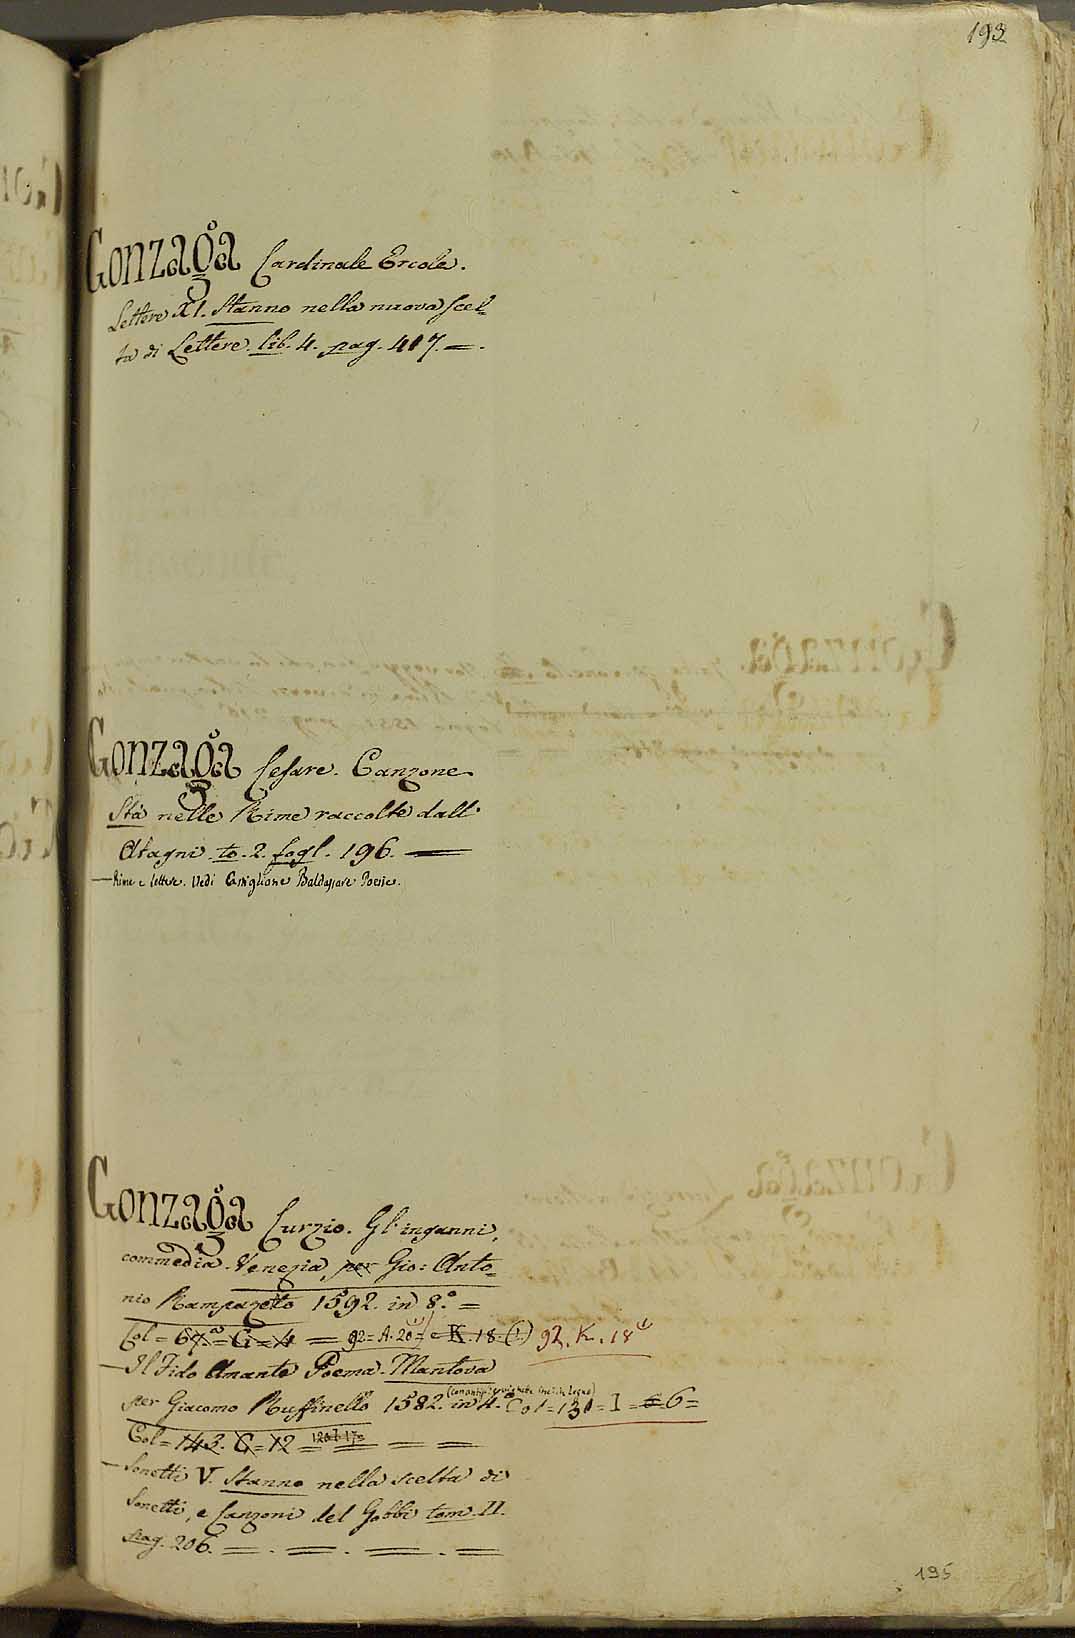 193
Gonzaga Cardinale Ercole.
Lettere XI. Stanno nella nuova scel=
ta di Lettere. lib. 4. pag. 417. = .
Gonzaga Cesare. Canzone.
Stà nelle Rime raccolte dall'
Atagni. to. 2. fogl. 196. —
— Rime e lettere. Vedi Castiglione Baldassare Poesie.
Gonzaga Curzio. Gl'inganni,
commedia. Venezia, per Gio: Anto=
nio Rampazeto 1592. in 8.° =
Col = 67.a = G = 4 = 92 = A. 20 = K. 18 (1) 92. K. 18
— Il Fido Amante Poema. Mantova
per Giacomo Ruffinello 1582. in 4.° Col = 131 = I = 6 =
Col = 143. G = 12 =
— Sonetti V. Stanno nella scelta di
Sonetti, e Canzoni del Gobbi tom. II.
pag. 206. = . = . = . =
195